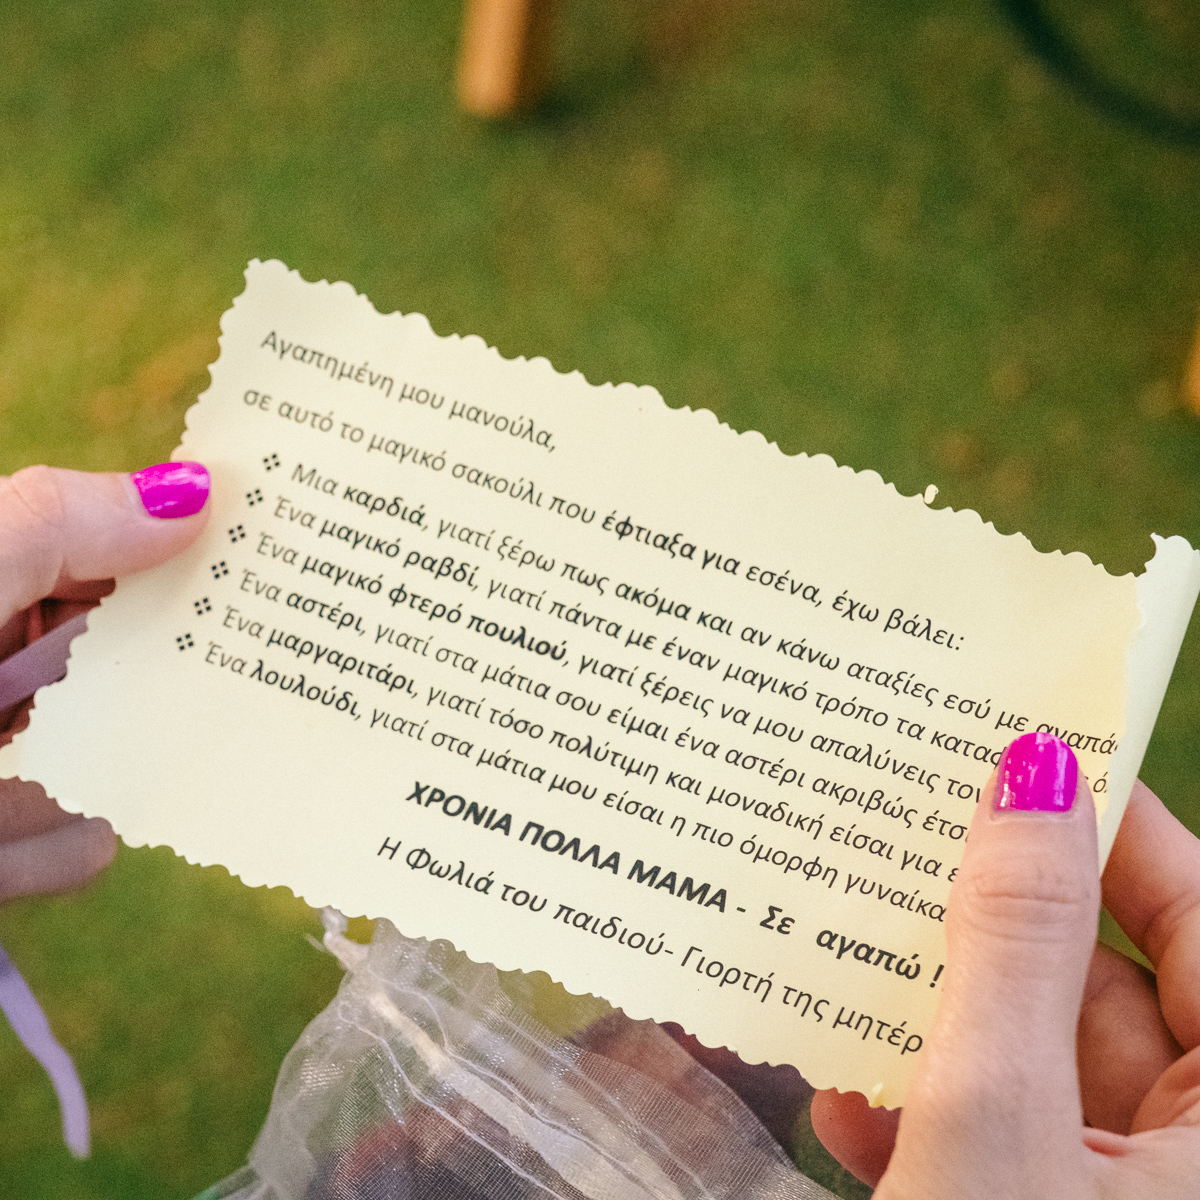 Αγαπημένη μου μανούλα,
σε αυτό το μαγικό σακούλι που έφτιαξα για εσένα, έχω βάλει:
❖ Μια καρδιά, γιατί ξέρω πως ακόμα και αν κάνω αταξίες εσύ με αγαπά
❖ Ένα μαγικό ραβδί, γιατί πάντα με έναν μαγικό τρόπο τα
❖ Ένα μαγικό φτερό πουλιού, γιατί ξέρεις να μου απαλύνεις τον
❖ Ένα αστέρι, γιατί στα μάτια σου είμαι ένα αστέρι ακριβώς έτσ
❖ Ένα μαργαριτάρι, γιατί τόσο πολύτιμη και μοναδική είσαι για
❖ Ένα λουλούδι, γιατί στα μάτια μου είσαι η πιο όμορφη γυναίκα
ΧΡΟΝΙΑ ΠΟΛΛΑ ΜΑΜΑ - Σε αγαπώ !
Η Φωλιά του παιδιού- Γιορτή της μητέρ